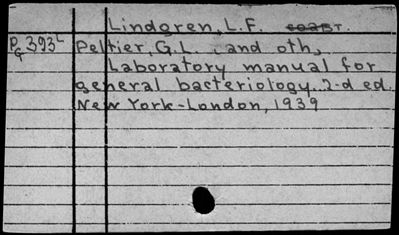 Lindgren, L.F. соавт.
P/G 393L Peltier, G.L. and oth,
Laboratory manual for
general bacteriology. 2-d ed.
New York-London, 1939